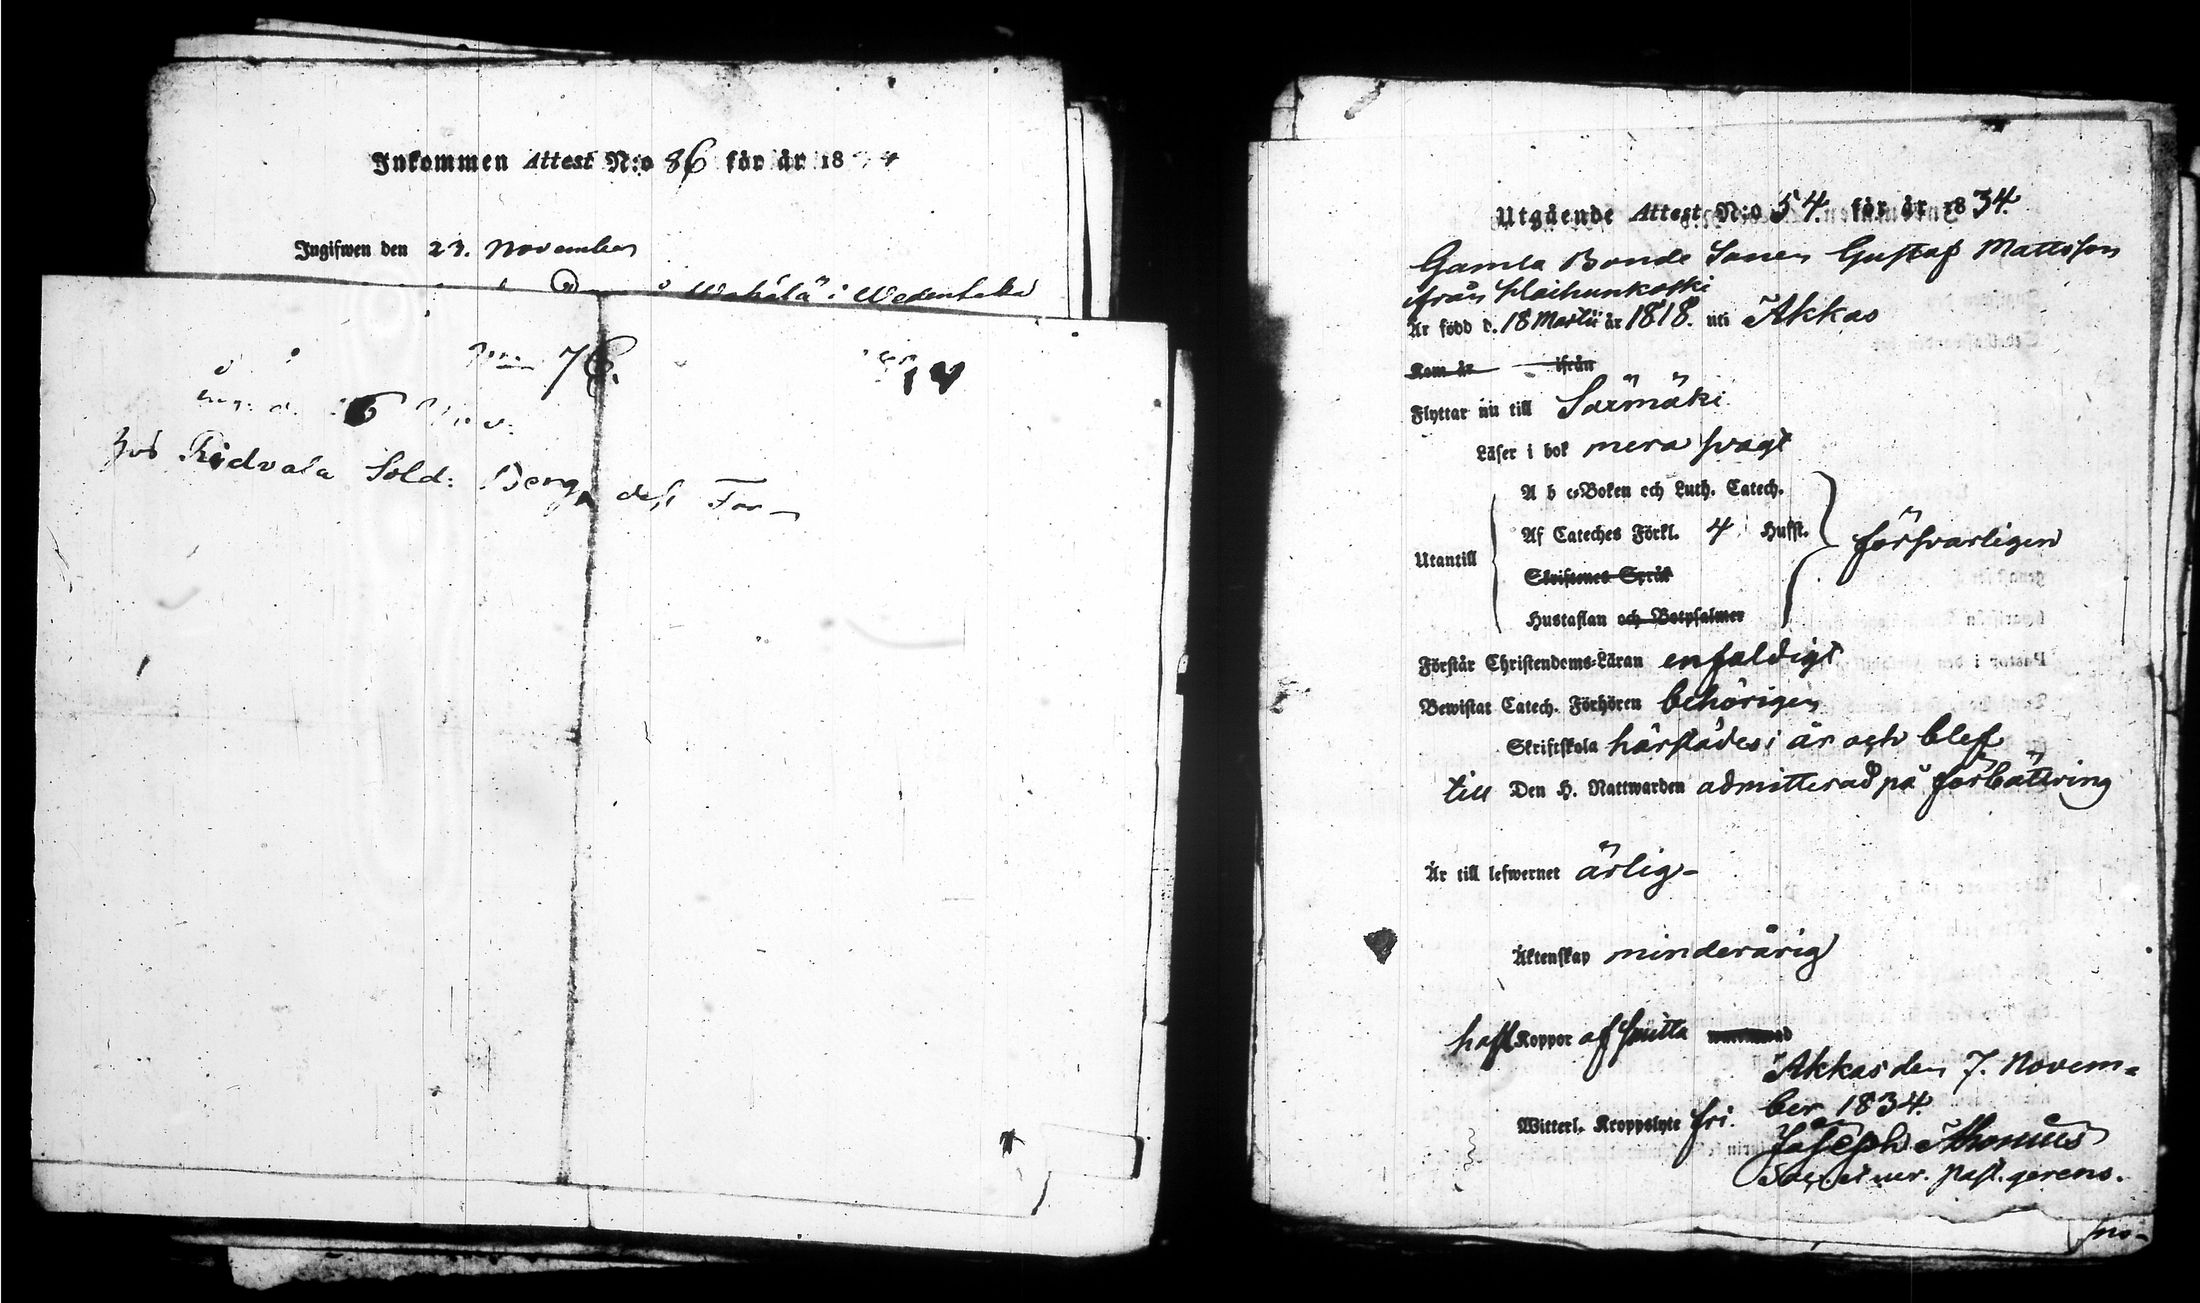 Inkommen Attest N:o 86 för år 18 4
Ingifwen den 23. November
i Wedentaka
N:o 78.
6 Nov:
hos Ridvala Sold: Berg, dess Tor_
Utgående Attest N:o 54. för år 1834.
Gamla Bonde Sonen Gustaf Mattsson
från
Är född d. 18 Martii år 1818. uti Akkas
Kom år ifrån
Flyttar nu till Särmäki
Läser i bok mera svagt
A b c-Boken och Luth. Catech.
Af Cateches Förkl. 4 Hufst.
försvarligen
Utantill
Skriftenes Språk
Hustaflan och Botpsalmer
Förstår Christendoms-Läran enfaldigt
Bewistat Catech. Förhören behörigen
Skriftskola härstädes i år och blef
till Den H. Nattwarden admitterad på förbättring
Är till lefwernet ärlig-
Äktenskap minderårig
haft Koppor af smitta
Akkas den 7. Novem-
ber 1834.
Witterl. Kroppslyte fri.
Joseph
past. gerens.